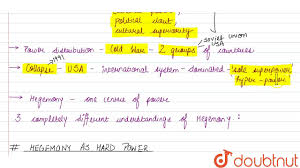 political clout
cultural superiority
soviet union
USA
→ Power distribution - Cold War - 2 groups of countries
1991
→ Collapse - USA - International system - dominated - 'sole superpower'
hyper-power
→ Hegemony - one centre of power
3 completely different understandings of Hegemony :
# HEGEMONY AS HARD POWER
doubtnut